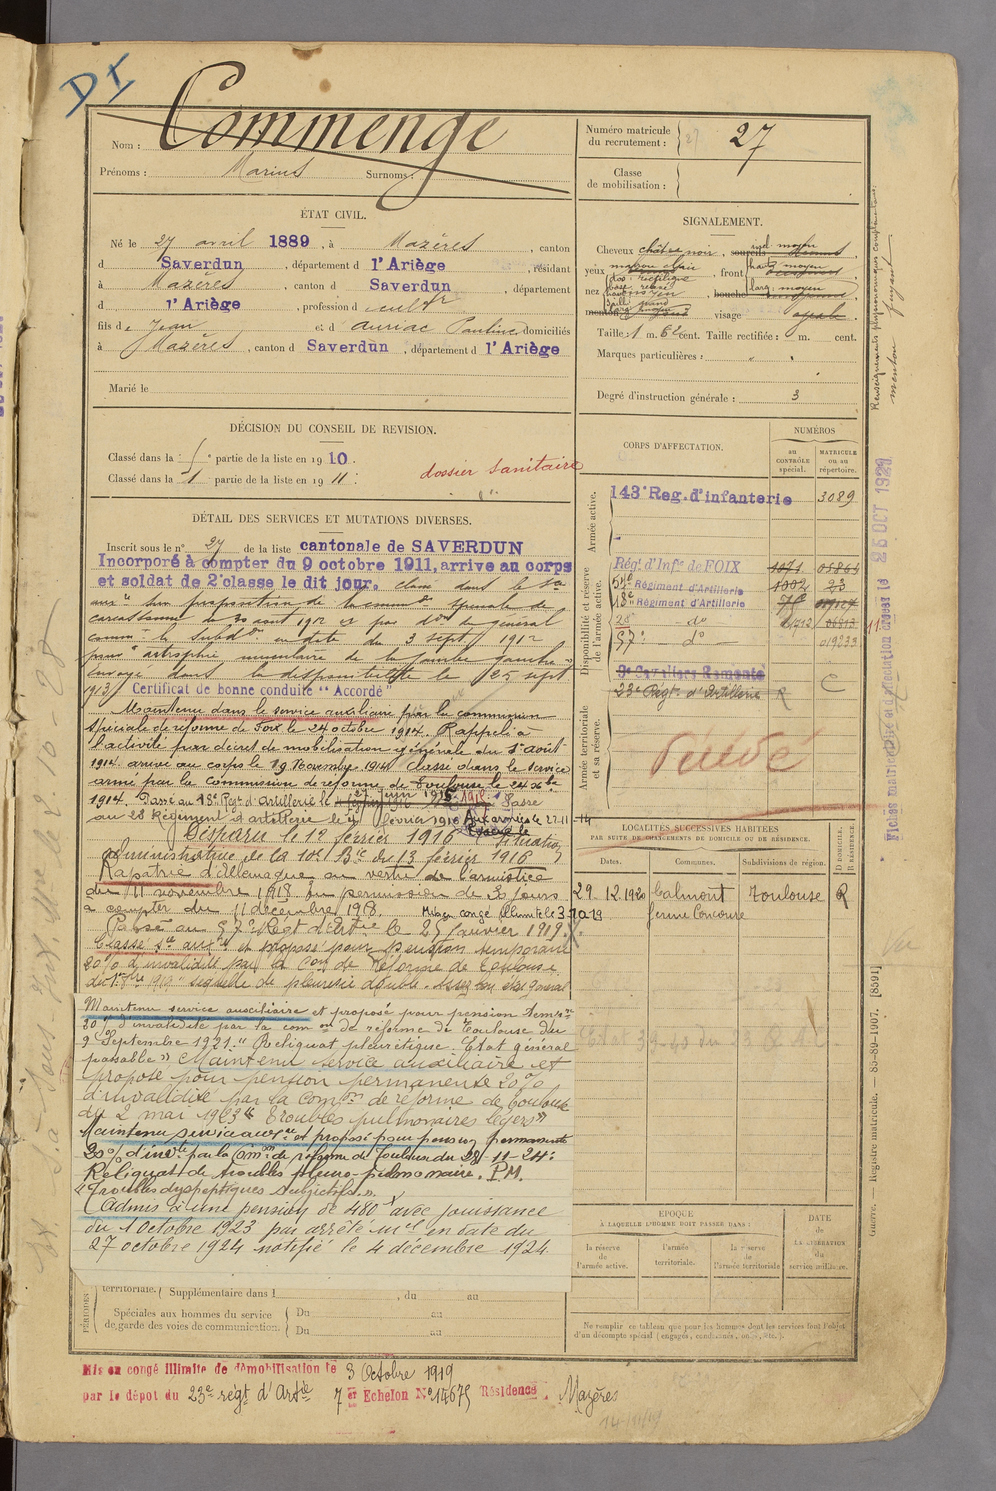 DI
Nom : Commenge
Prénoms : Marius Surnoms :
Numéro matricule du recrutement : 27
Classe de mobilisation :
ÉTAT CIVIL.
Né le 27 avril 1889, à Mazères, canton
d Saverdun, département d l'Ariège, résidant
à Mazères, canton d Saverdun, département
d l'Ariège, profession de cultr
fils de Jean et d'Auriac Pauline domiciliés
à Mazères, canton d Saverdun, département d l'Ariège
Marié le
SIGNALEMENT.
Cheveux châtn noir, sourcils
yeux marron clair, front
nez, bouche
menton visage ovale
Taille : 1 m. 62 cent. Taille rectifiée : m. cent.
Marques particulières :
Degré d'instruction générale : 3
Renseignements physionomiques complémentaires :
menton fuyant
DÉCISION DU CONSEIL DE REVISION.
Classé dans la 5e partie de la liste en 1910.
Classé dans la 1 partie de la liste en 1911 :
dossier sanitaire
DÉTAIL DES SERVICES ET MUTATIONS DIVERSES.
Inscrit sous le n° 27 de la liste cantonale de SAVERDUN
Incorporé à compter du 9 octobre 1911, arrivé au corps
et soldat de 2e classe le dit jour. classé dans le sce
auxre sur proposition de la common spéciale de
Carcassonne du 30 août 1912 et par don du général
commt la subdon en date du 3 sept 1912
pour atrophie musculaire de la jambe gauche
envoyé dans la disponibilité le 25 sept
1913 Certificat de bonne conduite "Accordé"
Maintenu dans le service auxiliaire par la commission
spéciale de réforme de Foix le 24 octobre 1914. Rappelé à
l'activité par décret de mobilisation générale du 1er août
1914. arrivé au corps le 19 Novembre 1914 Classé dans le service
armé par la Commission de réforme de Toulouse le 24 Xbre
1914. Passé au 18e Régt d'artillerie le 27 Juin 1915 Passé
au 28 Régiment d'artillerie le février 1916 Aux armées le 22-11-14
Disparu le 12 février 1916 Situation
administrative de la 10e Bie du 13 février 1916
Rapatrié d'Allemagne en vertu de l'armistice
du 11 novembre 1918 en permission de 30 jours
à compter du 11 décembre 1918. Mis en congé illimité le 3.10.19
Passé au 57e Régt d'Artie le 25 Janvier 1919.
Classé sce auxre et proposé pour pension temporaire
20% d'invalidité par la Con de Réforme de Toulouse
du 1919 "séquelle de pleurésie double. Assez bon état général
Maintenu service auxiliaire et proposé pour pension temre
20% d'invalidité par la comon de réforme de Toulouse du
9 Septembre 1921. "Reliquat pleurétique. Etat général
passable" Maintenu service auxiliaire et
proposé pour pension permanente 20%
d'invalidité par la Comon de réforme de Toulouse
du 2 mai 1923 "Troubles pulmonaires légers"
Maintenu service auxre et proposé pour pension permanente
20% d'invté par la Comon de réforme de Toulouse du 28-11-24:
Reliquat de troubles pleuro-pulmonaire. P.M.
"Troubles dyspeptiques subjectifs."
Admis à une pension de 480f avec jouissance
du 1 octobre 1923 par arrêté mel en date du
27 octobre 1924 notifié le 4 décembre 1924
CORPS D'AFFECTATION.
NUMÉROS
au CONTRÔLE spécial.
MATRICULE ou au répertoire.
Armée active.
143e Reg. d'infanterie 3089
Disponibilité et réserve de l'armée active.
Régt d'Infie de FOIX 1071
Régiment d'Artillerie 1002 23
18e Régiment d'Artillerie
28e do
57e do 019233
Armée territoriale et sa réserve.
23e Régt d'Artillerie R C
Fiches matricule et d'affectation dressées le 25 OCT 1929
LOCALITÉS SUCCESSIVES HABITÉES
PAR SUITE DE CHANGEMENTS DE DOMICILE OU DE RÉSIDENCE.
Dates. Communes. Subdivisions de région. D DOMICILE. R RÉSIDENCE.
29.12.1920 Calmont Toulouse R
ferme Concoure
ÉPOQUE
À LAQUELLE L'HOMME DOIT PASSER DANS :
la réserve de l'armée active.
l'armée territoriale.
la réserve de l'armée territoriale
DATE de LA LIBÉRATION du service militaire.
PÉRIODES
territoriale. Supplémentaire dans l , du au
Spéciales aux hommes du service de garde des voies de communication. Du au
Du au
Ne remplir ce tableau que pour les hommes dont les services font l'objet
d'un décompte spécial (engagés, condamnés, omis, etc.).
Guerre. — Registre matricule. — 85-89-1907. [8591]
Mis en congé illimité de démobilisation le 3 Octobre 1919
par le dépôt du 23e régt d'Artie 7e Echelon N° 14675 Résidence, Mazères